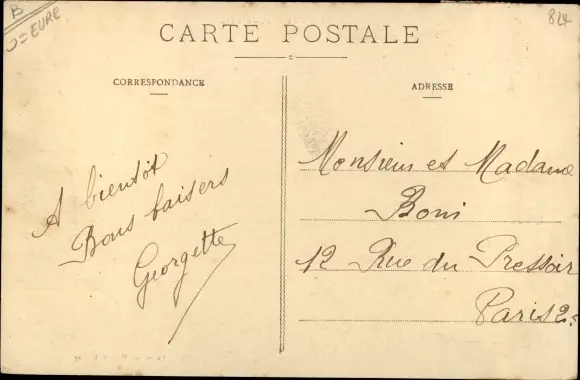 B
D=EURE
824
CARTE POSTALE
CORRESPONDANCE
ADRESSE
A bientôt
Bons baisers
Georgette
Monsieur et Madame
Boni
12 Rue du Pressoir
Paris 2